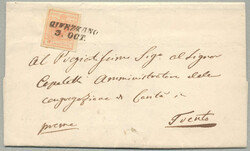 CIVEZZANO
3. OCT.
Al Pregiatissimo Sigr al Signor
Capeletti Amministratore della
congregazione di Carità in
Trento
preme